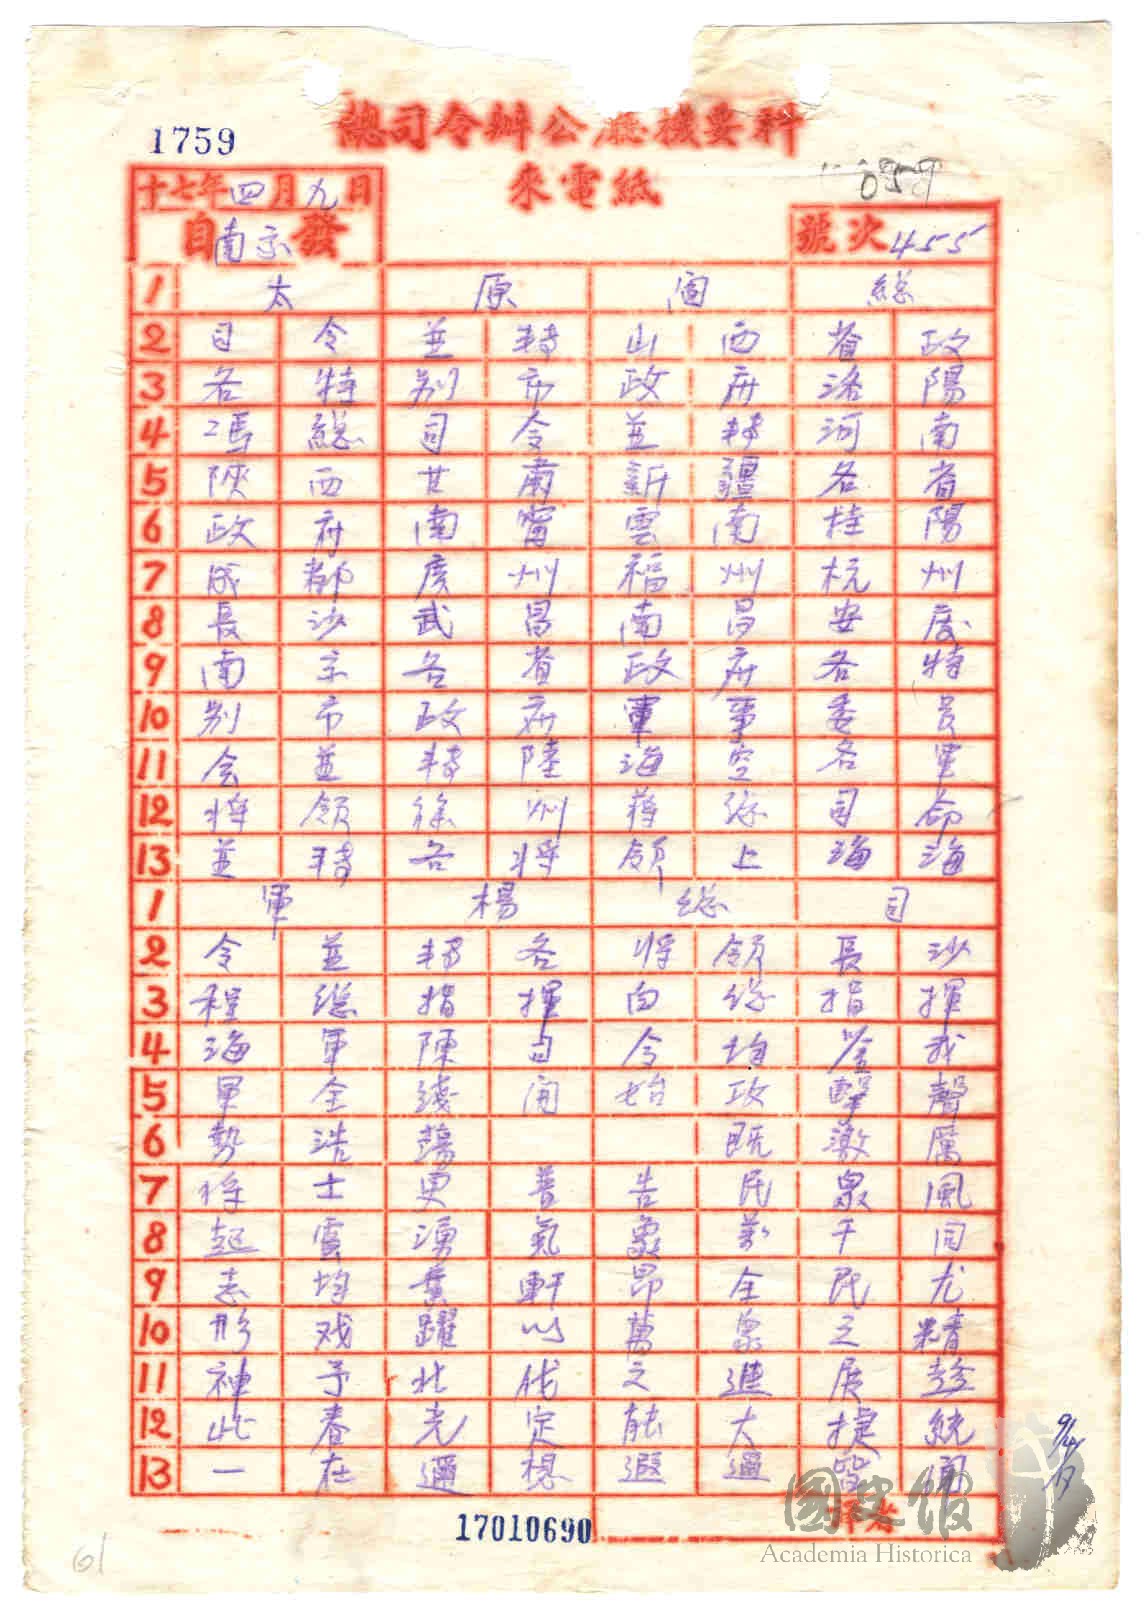 總司令辦公廳機要科
1759
來電紙
十七年四月九日
自南京發
號次455
1 太原閻總
2 司令並轉山西省政
3 各特別市政府洛陽
4 馮總司令並轉河南
5 陝西甘肅新疆各省
6 政府南甯雲南桂陽
7 成都廣州福州杭州
8 長沙武昌南昌安慶
9 南京各省政府各特
10 別市政府軍事委員
11 会並轉陸海空各軍
12 將領徐州蔣總司令
13 並轉各將領上海海
1 軍楊總司
2 令並轉各將領長沙
3 程總指揮白總指揮
4 海軍陳司令均鑒我
5 軍全綫開始攻擊聲
6 勢浩蕩既激厲
7 將士更普告民衆風
8 起雲湧氣象萬千同
9 志均奮軒昂全民尤
10 形戏躍以萬衆之精
11 神予北伐之進展趁
12 此春光定能大捷統
13 一在邇想遐邇皆同
譯者
17010690
9/4
61
國史館
Academia Historica